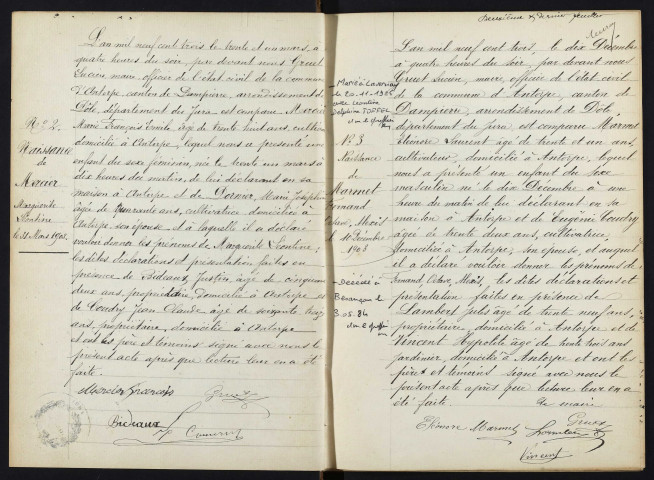 L'an mil neuf cent trois le trente et un mars, à
quatre heures du soir, par devant nous Gruet
Lucien, maire officier de l'état civil de la commune
d'Antorpe, canton de Dampierre, arrondissement de
Dôle, département du Jura, est comparu
Marie François, âgé de trente huit ans, cultivateur
domicilié à Antorpe, lequel nous a présenté un
enfant du sexe féminin, né le trente un mars à
dix heures du matin, de lui déclarant en sa
maison à Antorpe et de Marie Joséphine
âgée de quarante ans, cultivatrice domiciliée à
Antorpe, son épouse, et à laquelle il a déclaré
vouloir donner les prénoms de Marguerite Léontine;
les dites déclarations et présentation faites en
présence de Bidaux Justin, âgé de cinquante
deux ans, propriétaire, domicilié à Antorpe et
de Coudry Jean Claude âgé de soixante
ans, propriétaire, domicilié à Antorpe
et ont les père et témoins signé avec nous le
présent acte après que lecture leur en a été
faite.
N° 2
Naissance
de
Marguerite
Léontine
le 31 Mars 1903
Bidaux
Gruet
Deuxième & dernier feuillet
L'an mil neuf cent trois, le dix Décembre
à quatre heures du soir, par devant nous
Gruet Lucien, maire, officier de l'état civil
de la commune d'Antorpe, canton de
Dampierre, arrondissement de Dôle
département du Jura, est comparu Marmet
Eléonore Laurent âgé de trente et un ans,
cultivateur, domicilié à Antorpe, lequel
nous a présenté un enfant du sexe
masculin né le dix Décembre à une
heure du matin de lui déclarant en sa
maison à Antorpe et de Eugénie Coudry
âgée de trente deux ans, cultivatrice,
domiciliée à Antorpe, son épouse, et auquel
il a déclaré vouloir donner les prénoms de
Fernand, les dites déclarations et
présentation faites en présence de
Lambert fils âgé de trente neuf ans,
propriétaire, domicilié à Antorpe et de
Vincent Hyppolite âgé de trente trois ans
jardinier, domicilié à Antorpe et ont les
père et témoins signé avec nous le
présent acte après que lecture leur en a
été faite. Le maire
Marié à
le 20.11.1926
avec Léontine
Delphine
N° 3
Naissance
de
Marmet
Fernand
10 Décembre
1903
Décédé à
Besançon le
3.05.84
Eléonore Marmet
Gruet
Vincent